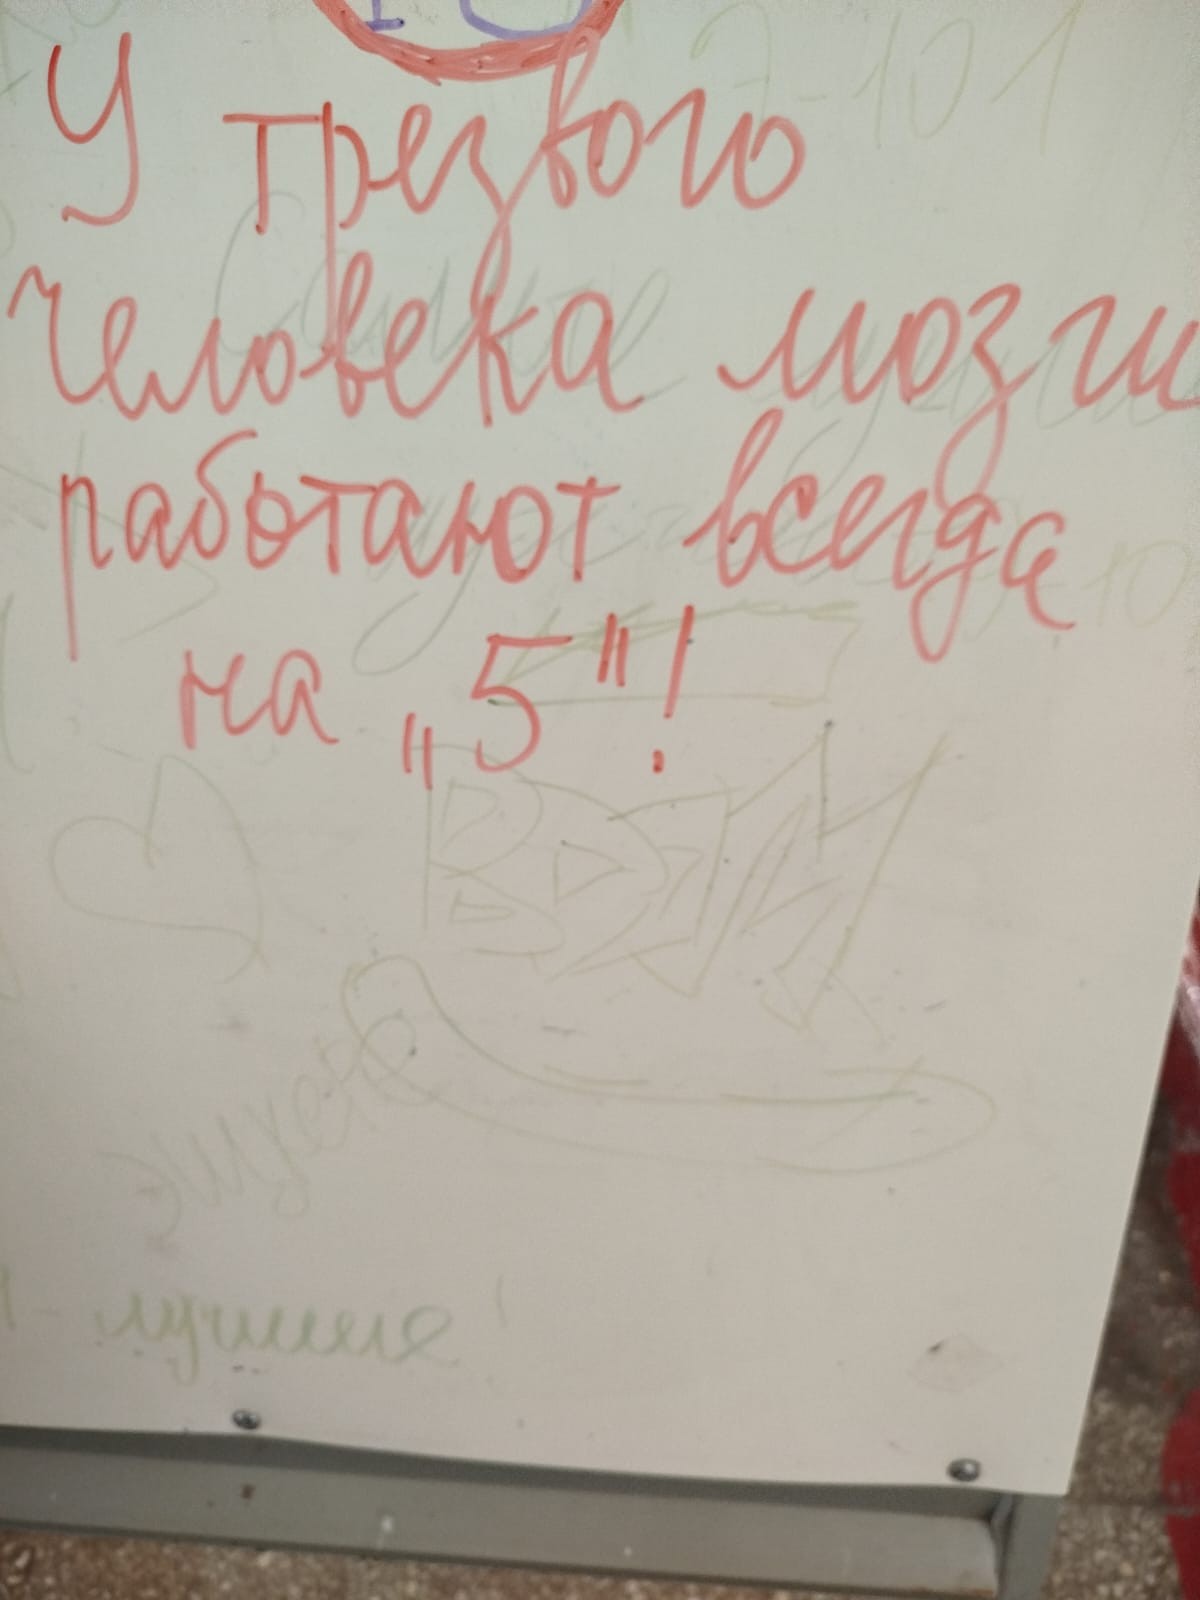 Э-101
У трезвого
человека мозги
работают всегда
на „5"!
- лучшие!